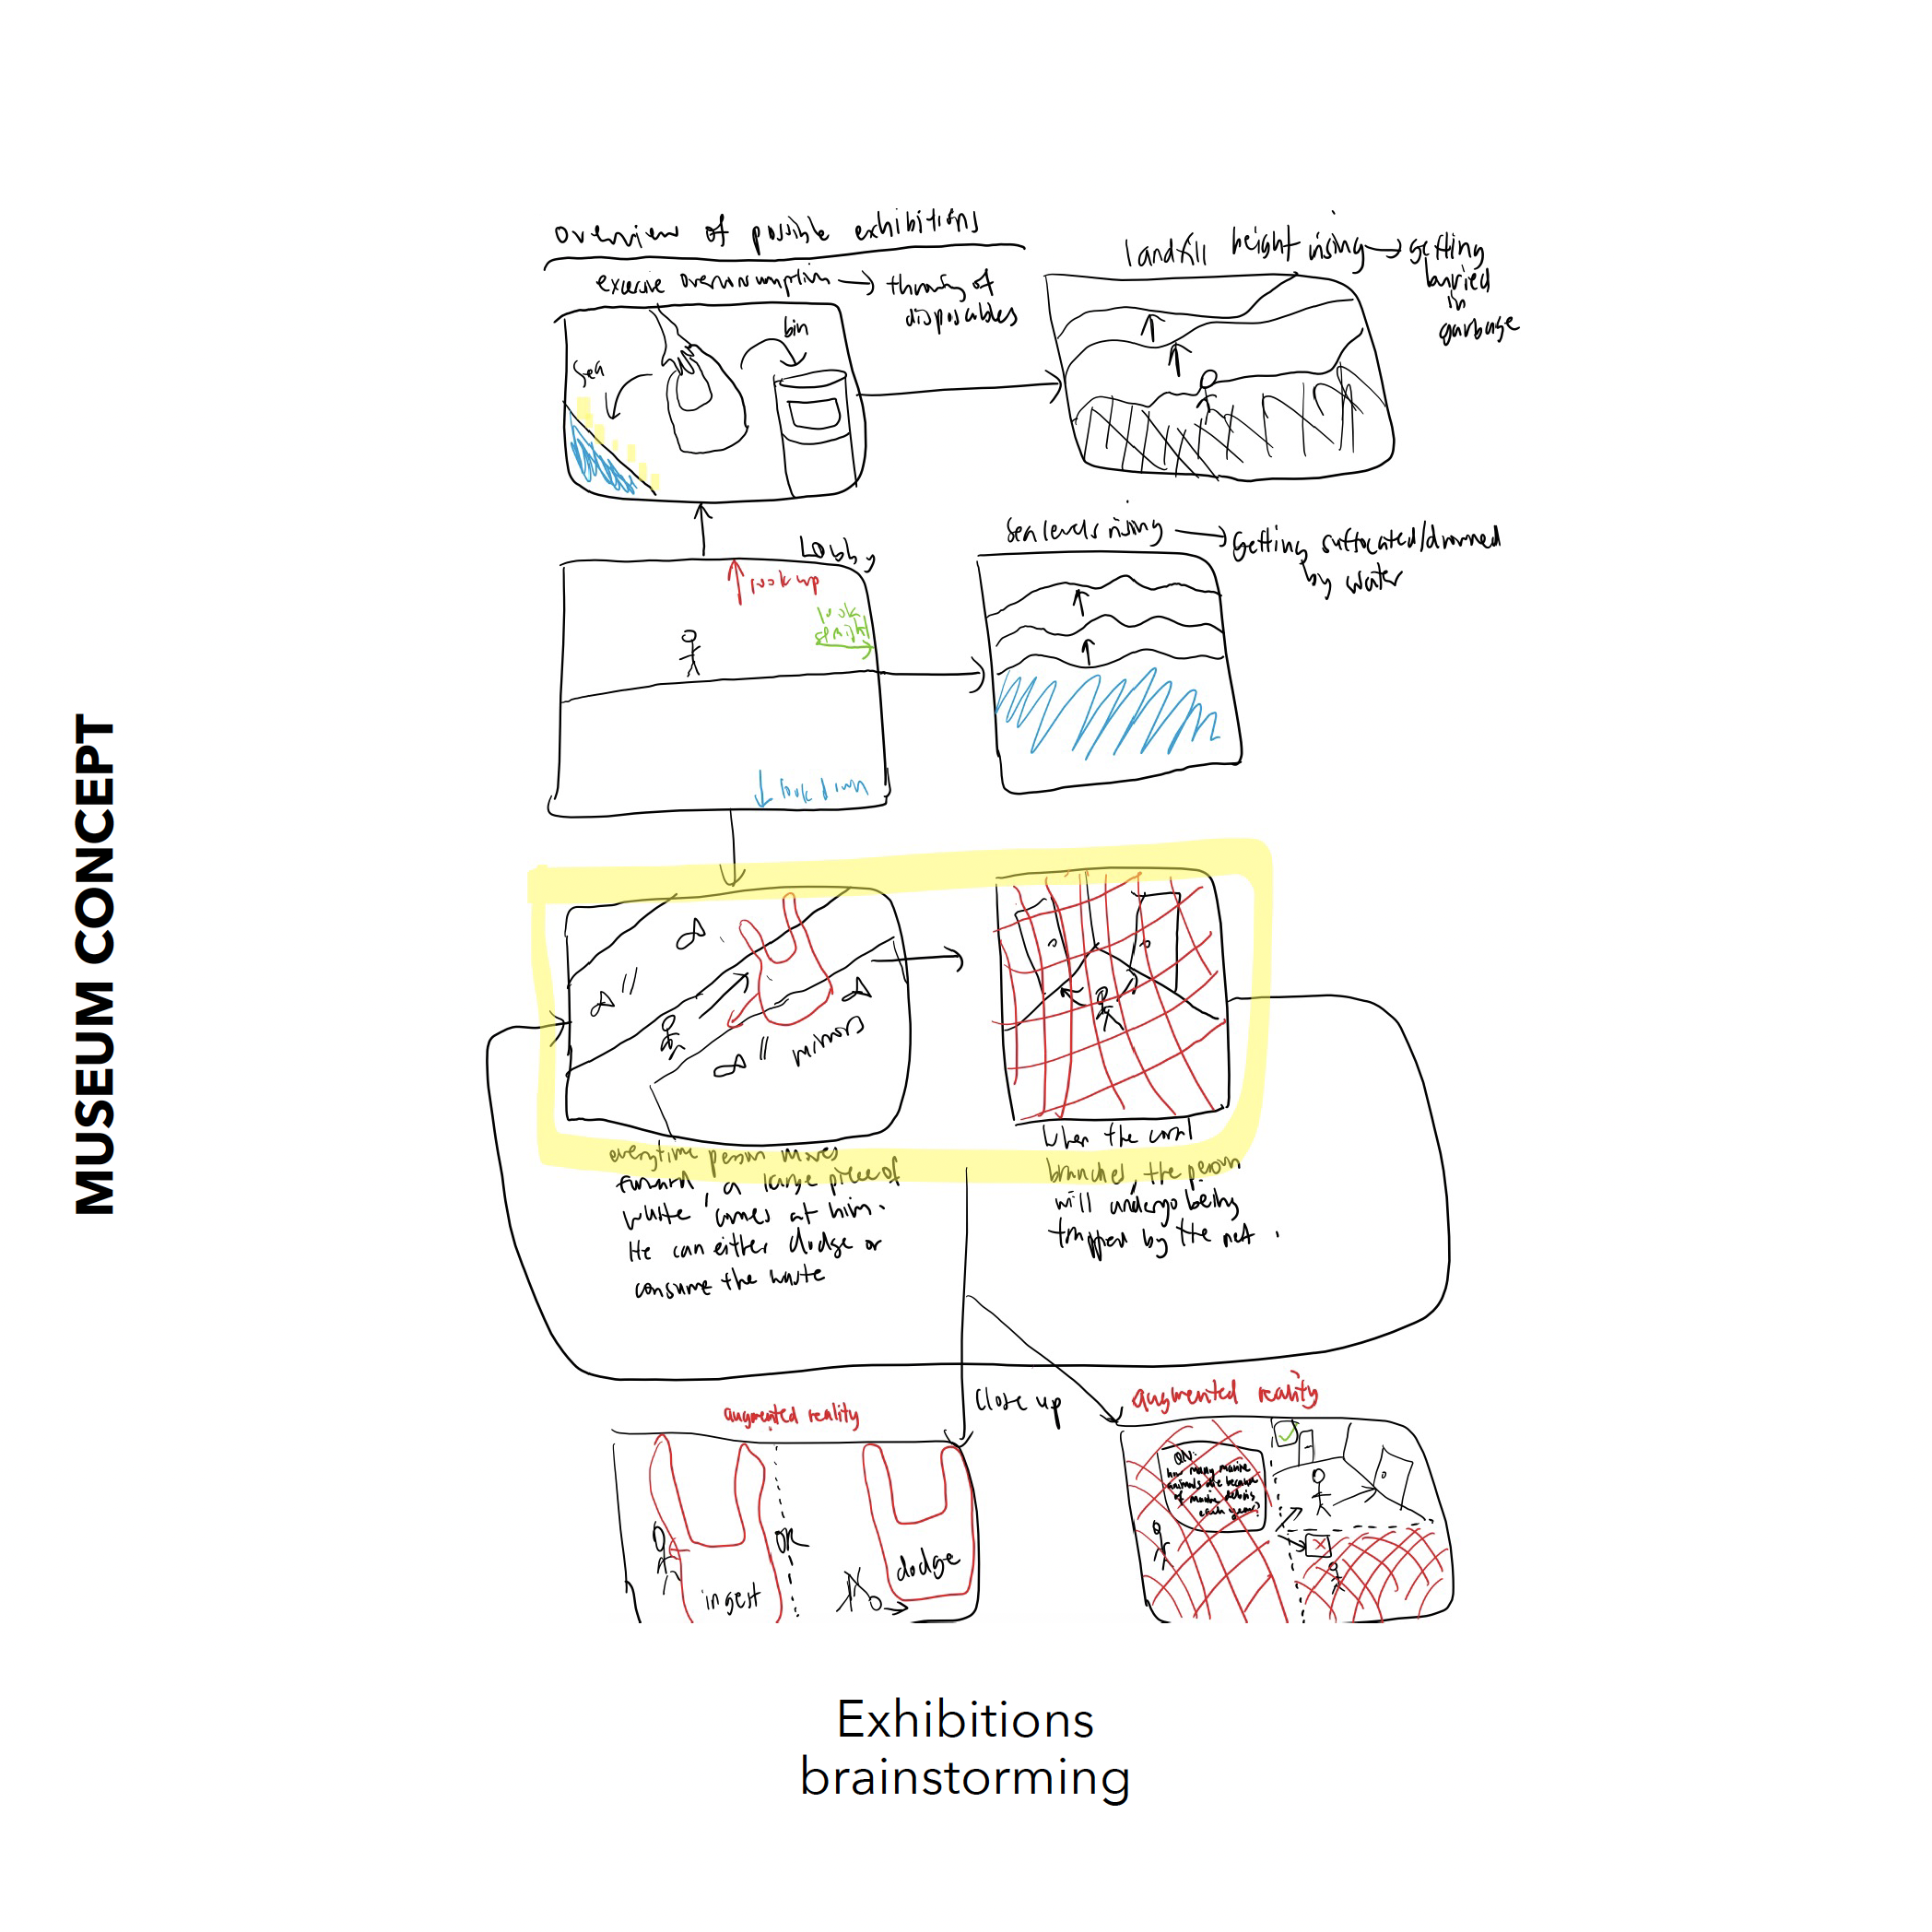 MUSEUM CONCEPT
overview of possible exhibitions
excessive overconsumption → throwing of
disposables
bin
sea
landfill height rising → getting
buried
in
garbage
Lobby
look up
look
straight
look down
sea levels rising → getting suffocated/drowned
by water
mirrors
everytime person moves
forward, a large piece of
waste comes at him.
He can either dodge or
consume the waste
when the coral
branches, the person
will undergo being
trapped by the net.
close up
augmented reality
ingest
OR
dodge
augmented reality
QN:
how many marine
animals die because
of marine debris
each year?
Exhibitions
brainstorming